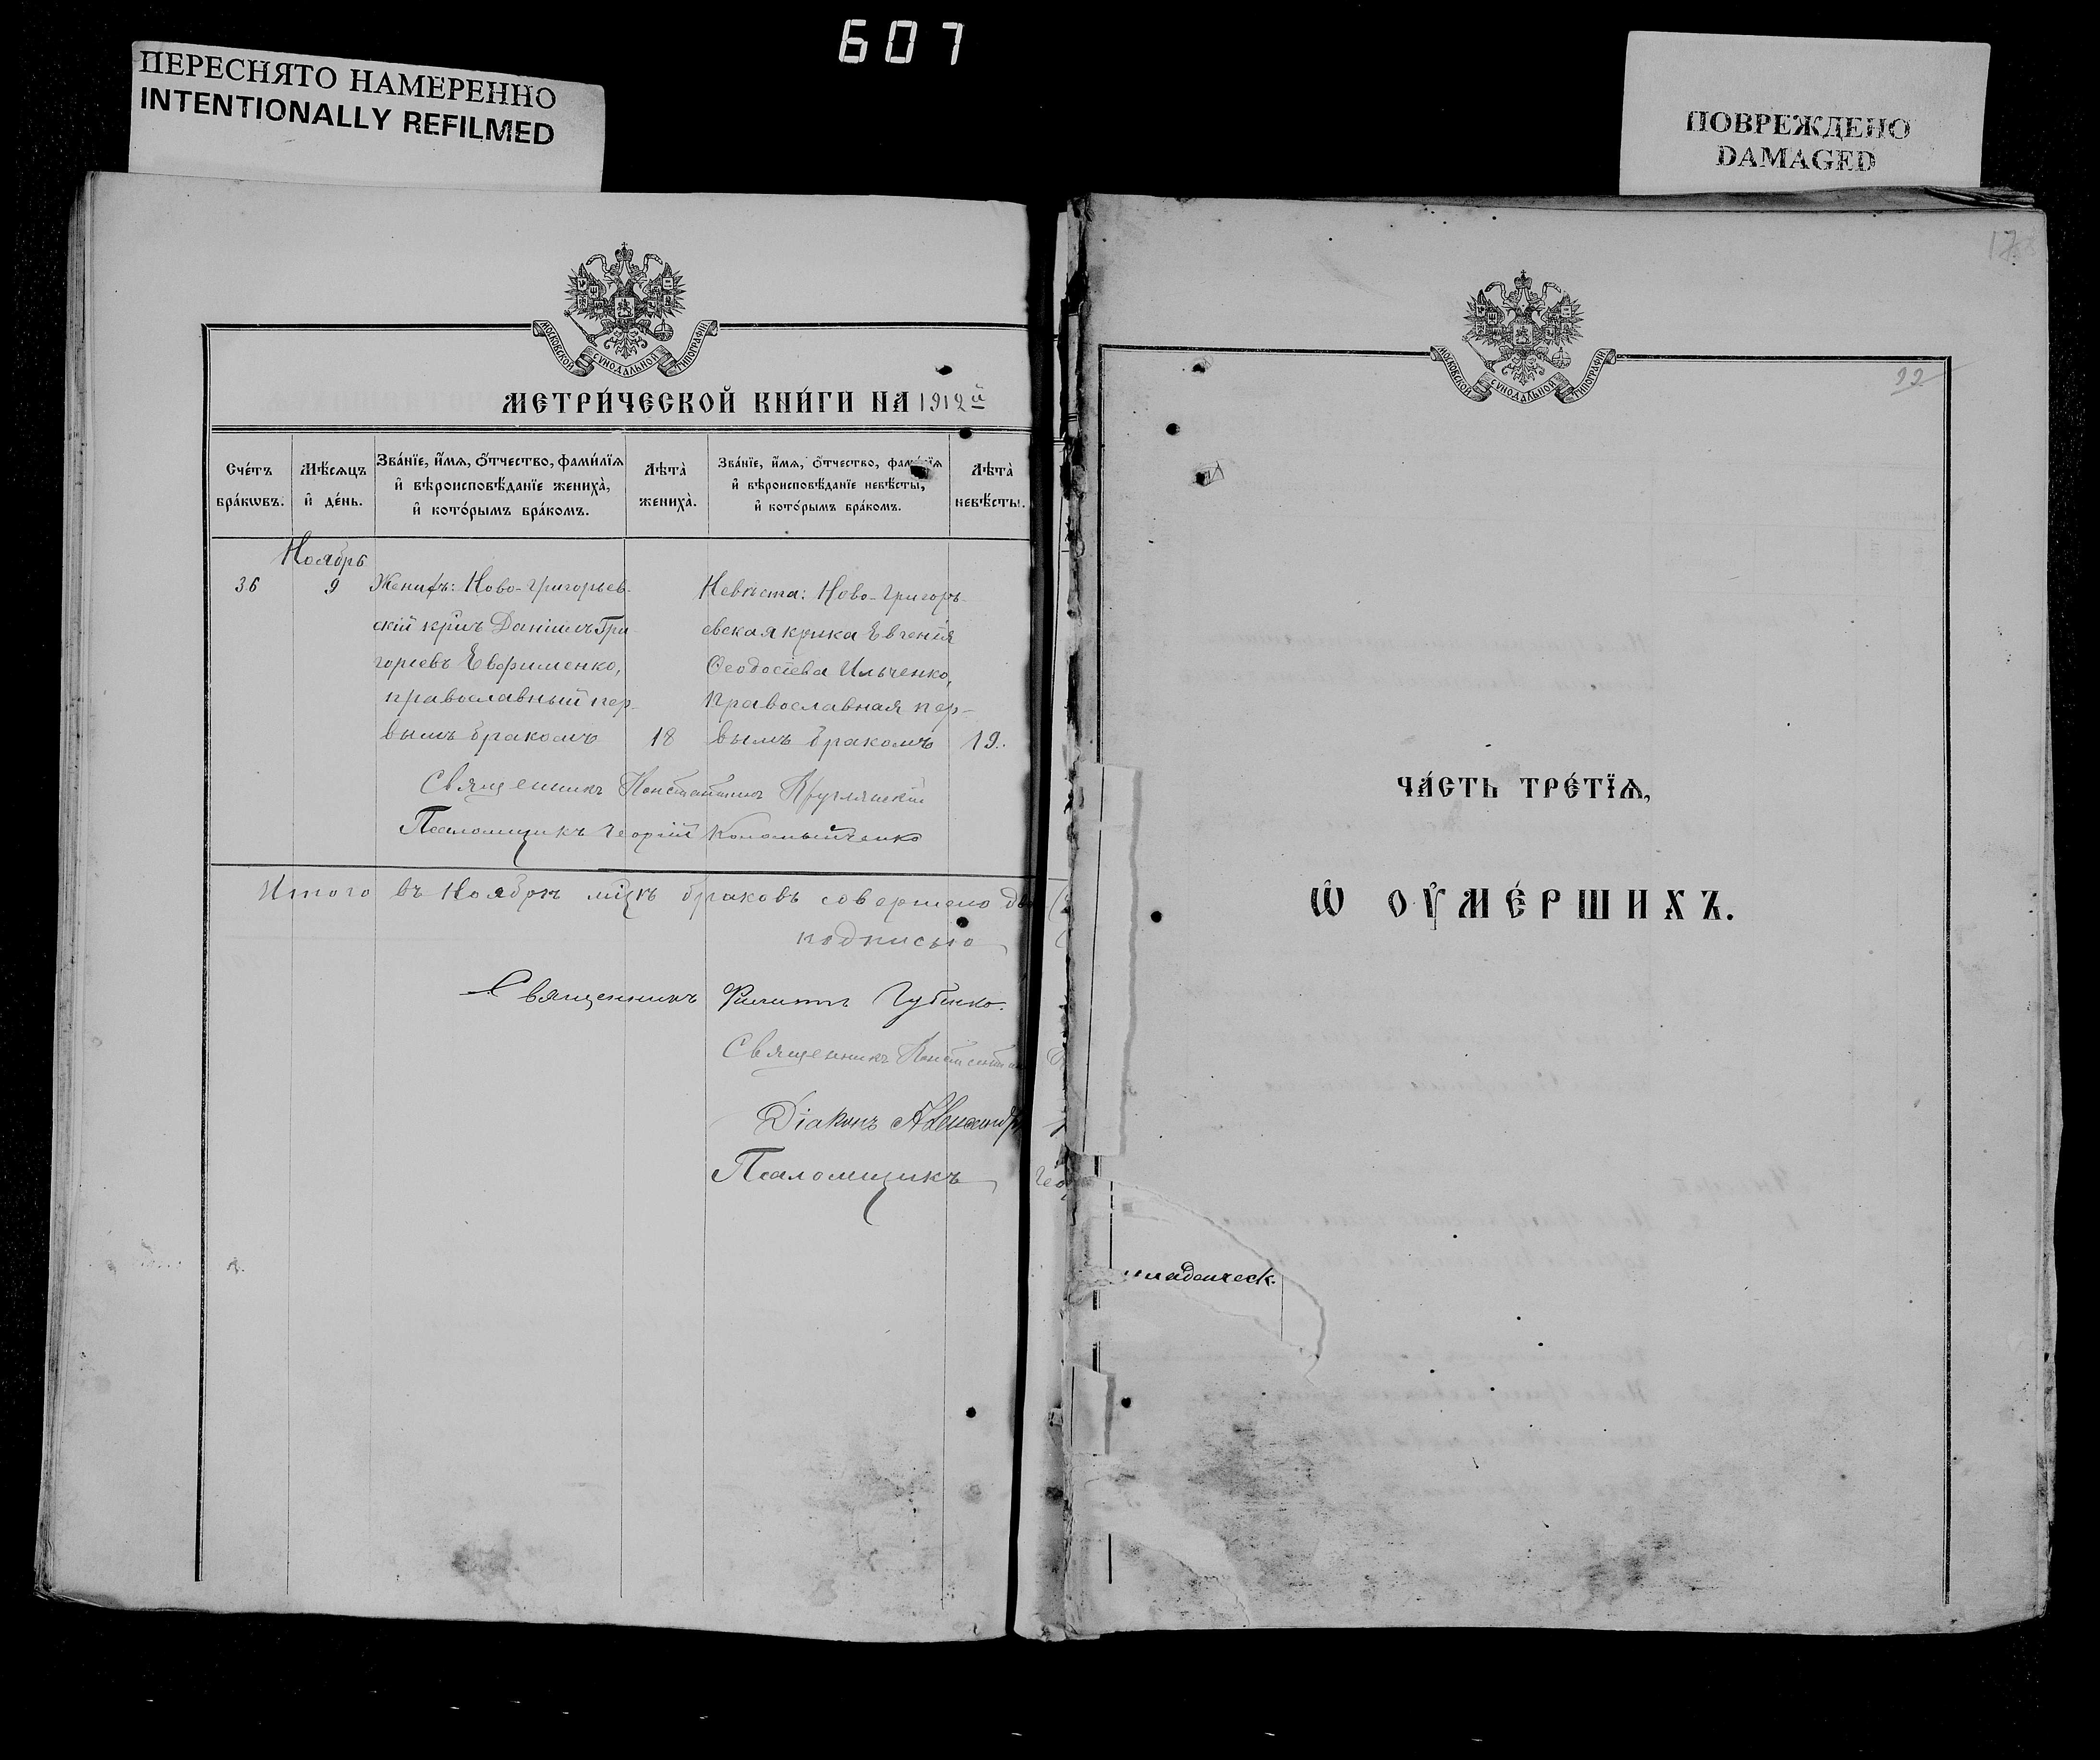 607
ПЕРЕСНЯТО НАМЕРЕННО
INTENTIONALLY REFILMED
ПОВРЕЖДЕНО
DAMAGED
МОСКОВСКОЙ СУНОДАЛЬНОЙ ТИПОГРАФІИ
МЕТРИ́ЧЕСКОЙ КНИ́ГИ НА 1912й
Сче́тъ бра́кѡвъ.
Мѣ́сяцъ и҆ де́нь.
Зва́нїе, и҆́мѧ, ѻ҆́тчество, фами́лїѧ
и҆ вѣроисповѣ́данїе жениха̀,
и҆ кото́рымъ бра́комъ.
Лѣта̀ жениха̀.
Зва́нїе, и҆́мѧ, ѻ҆́тчество, фами́лїѧ
и҆ вѣроисповѣ́данїе невѣ́сты,
и҆ кото́рымъ бра́комъ.
Лѣта̀ невѣ́сты.
Ноябрь
36 9 Женихъ: Ново-Григорьев-
скій кр̃нъ Даніилъ Гри-
горіевъ Евфименко,
православный пер-
вымъ бракомъ 18
Невѣста: Ново-Григорь-
евская кр̃нка Евгенія
Ѳеодосіева Ильченко,
православная пер-
вымъ бракомъ 19.
Священникъ Константинъ
Псаломщикъ Георгій Коломыйченко
Итого въ Ноябрѣ мцѣ браковъ совершено
подписью
Священникъ Филиппъ Губенко.
Священникъ
Діаконъ Александръ
Псаломщикъ
17
22
МОСКОВСКОЙ СУНОДАЛЬНОЙ ТИПОГРАФІИ
ЧА́СТЬ ТРЕ́ТЇѦ,
Ѡ҆ ОУ҆МЕ́РШИХЪ.
младенческ.